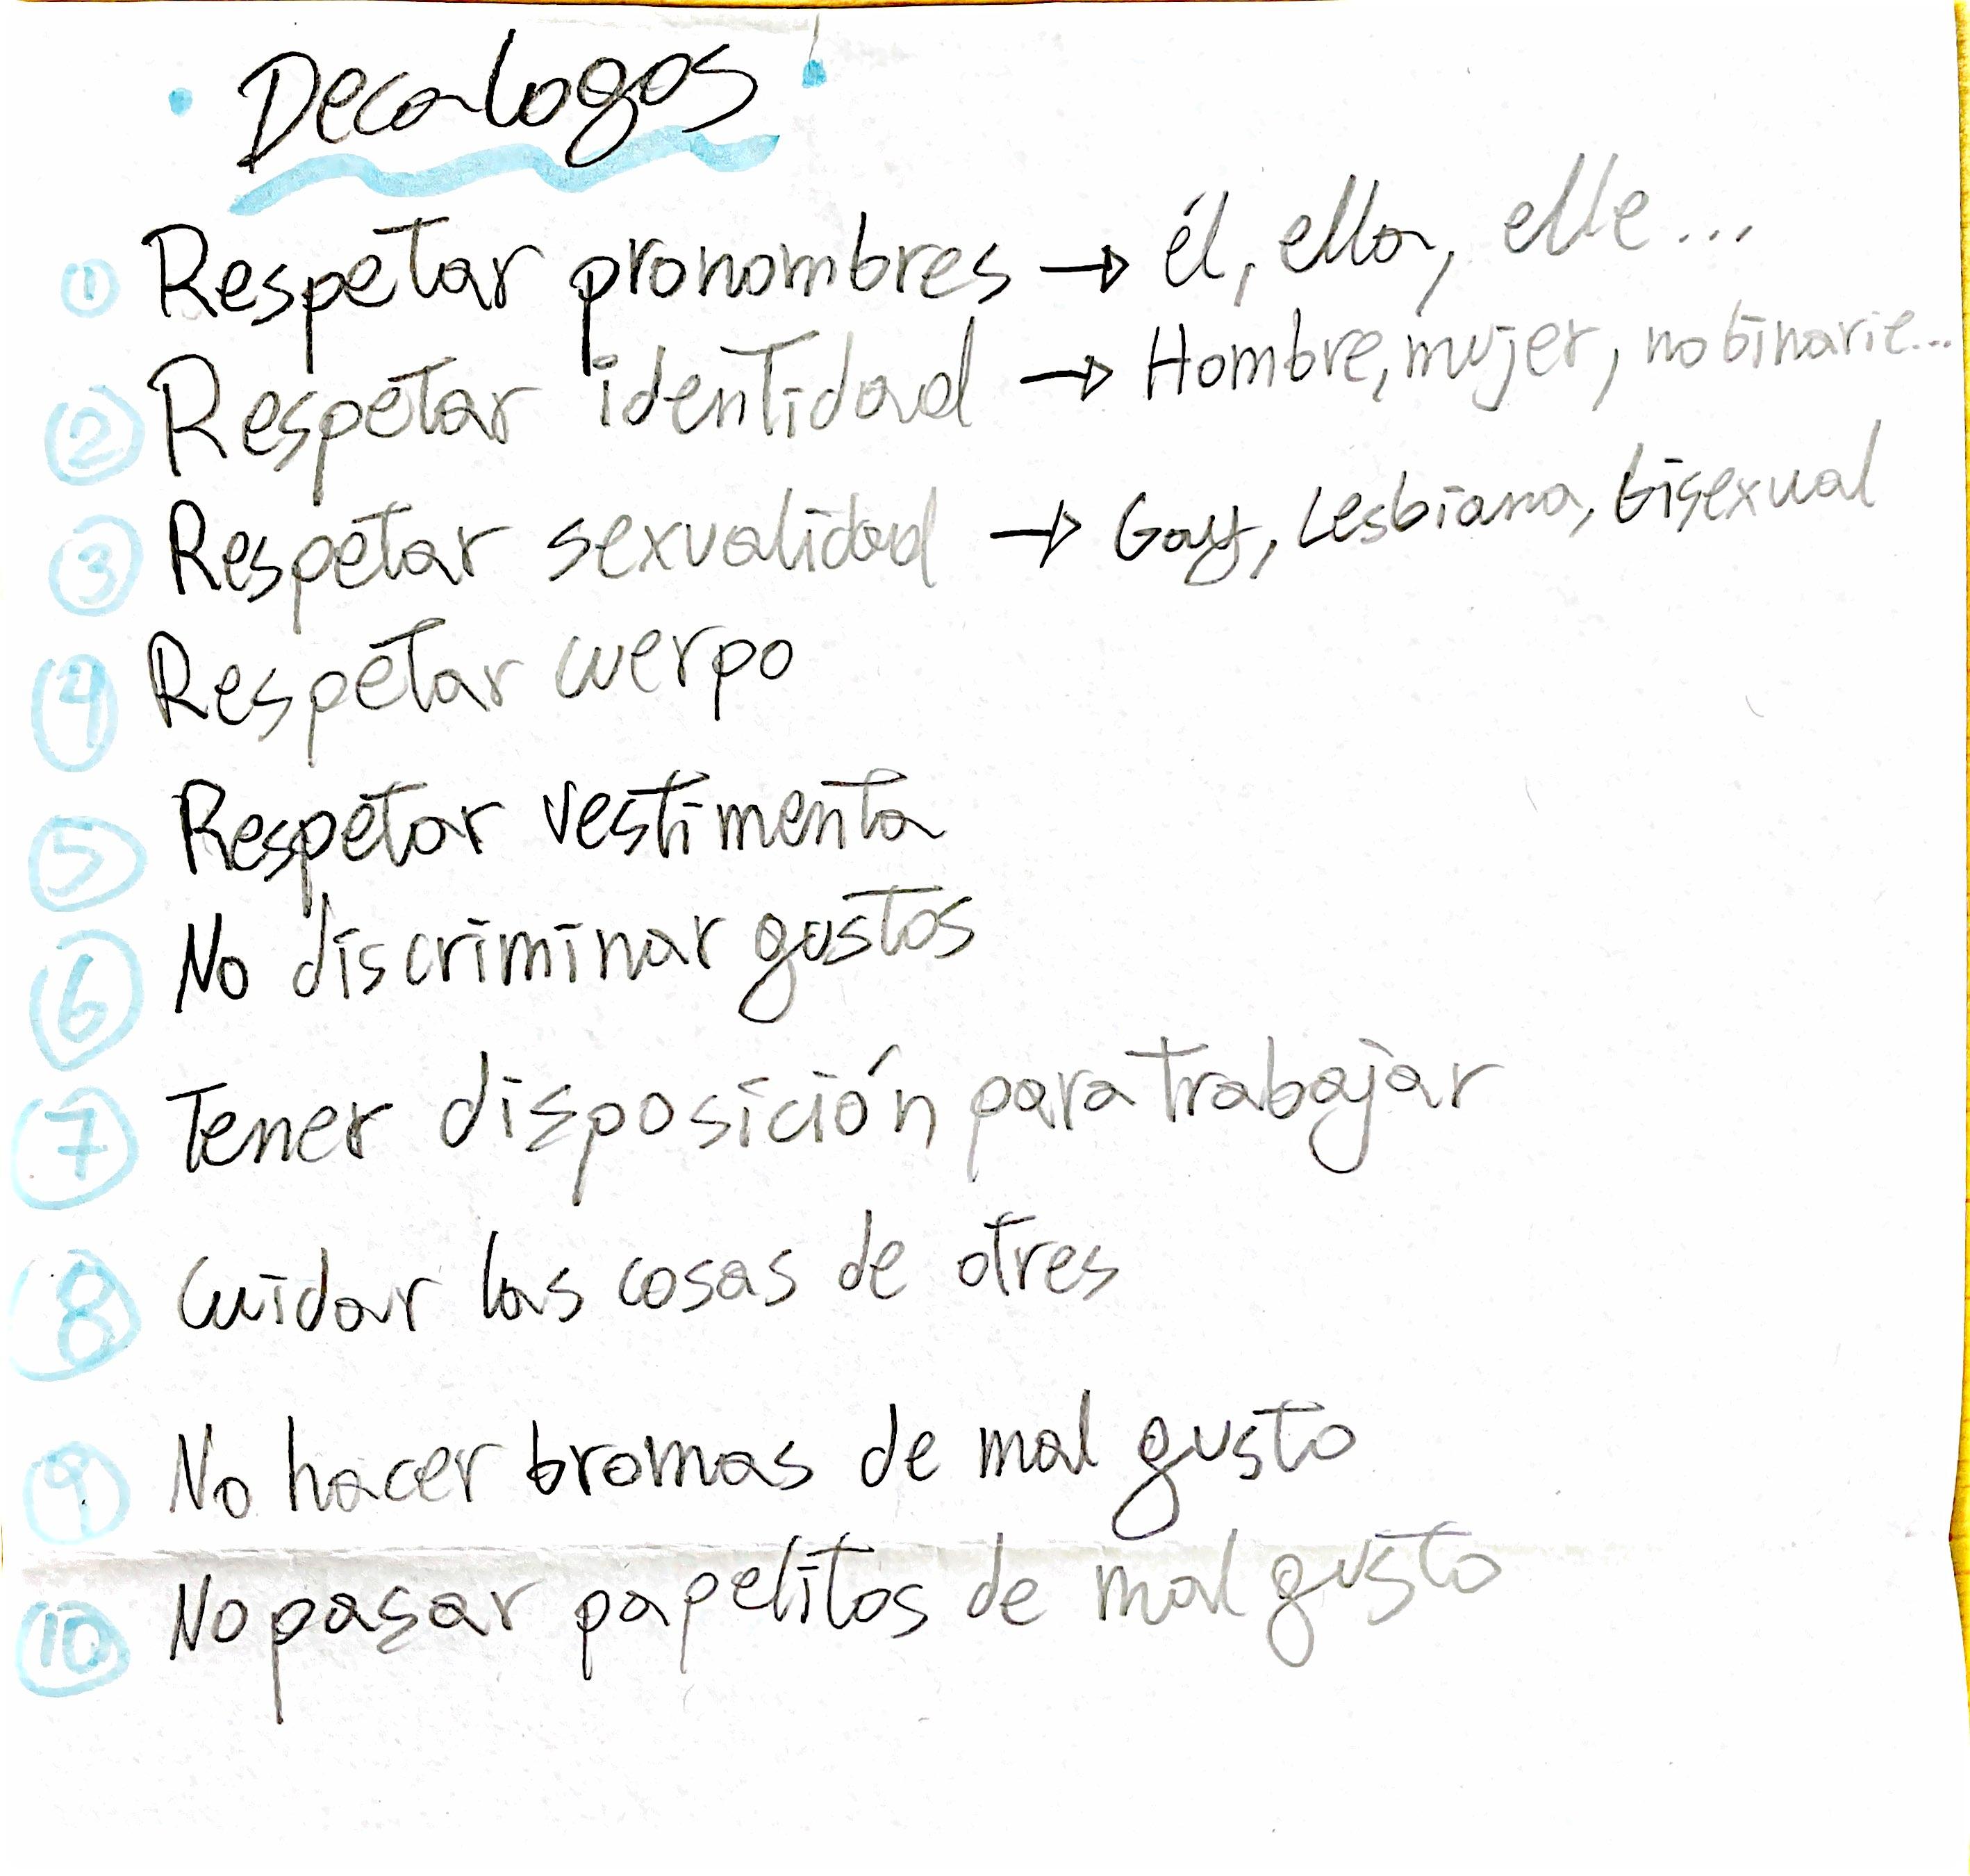 • Decalogos •
① Respetar pronombres → él, ella, elle...
② Respetar identidad → Hombre, mujer, no binarie...
③ Respetar sexualidad → Gay, Lesbiana, bisexual
④ Respetar cuerpo
⑤ Respetar vestimenta
⑥ No discriminar gustos
⑦ Tener disposición para trabajar
⑧ Cuidar las cosas de otres
⑨ No hacer bromas de mal gusto
⑩ No pasar papelitos de mal gusto